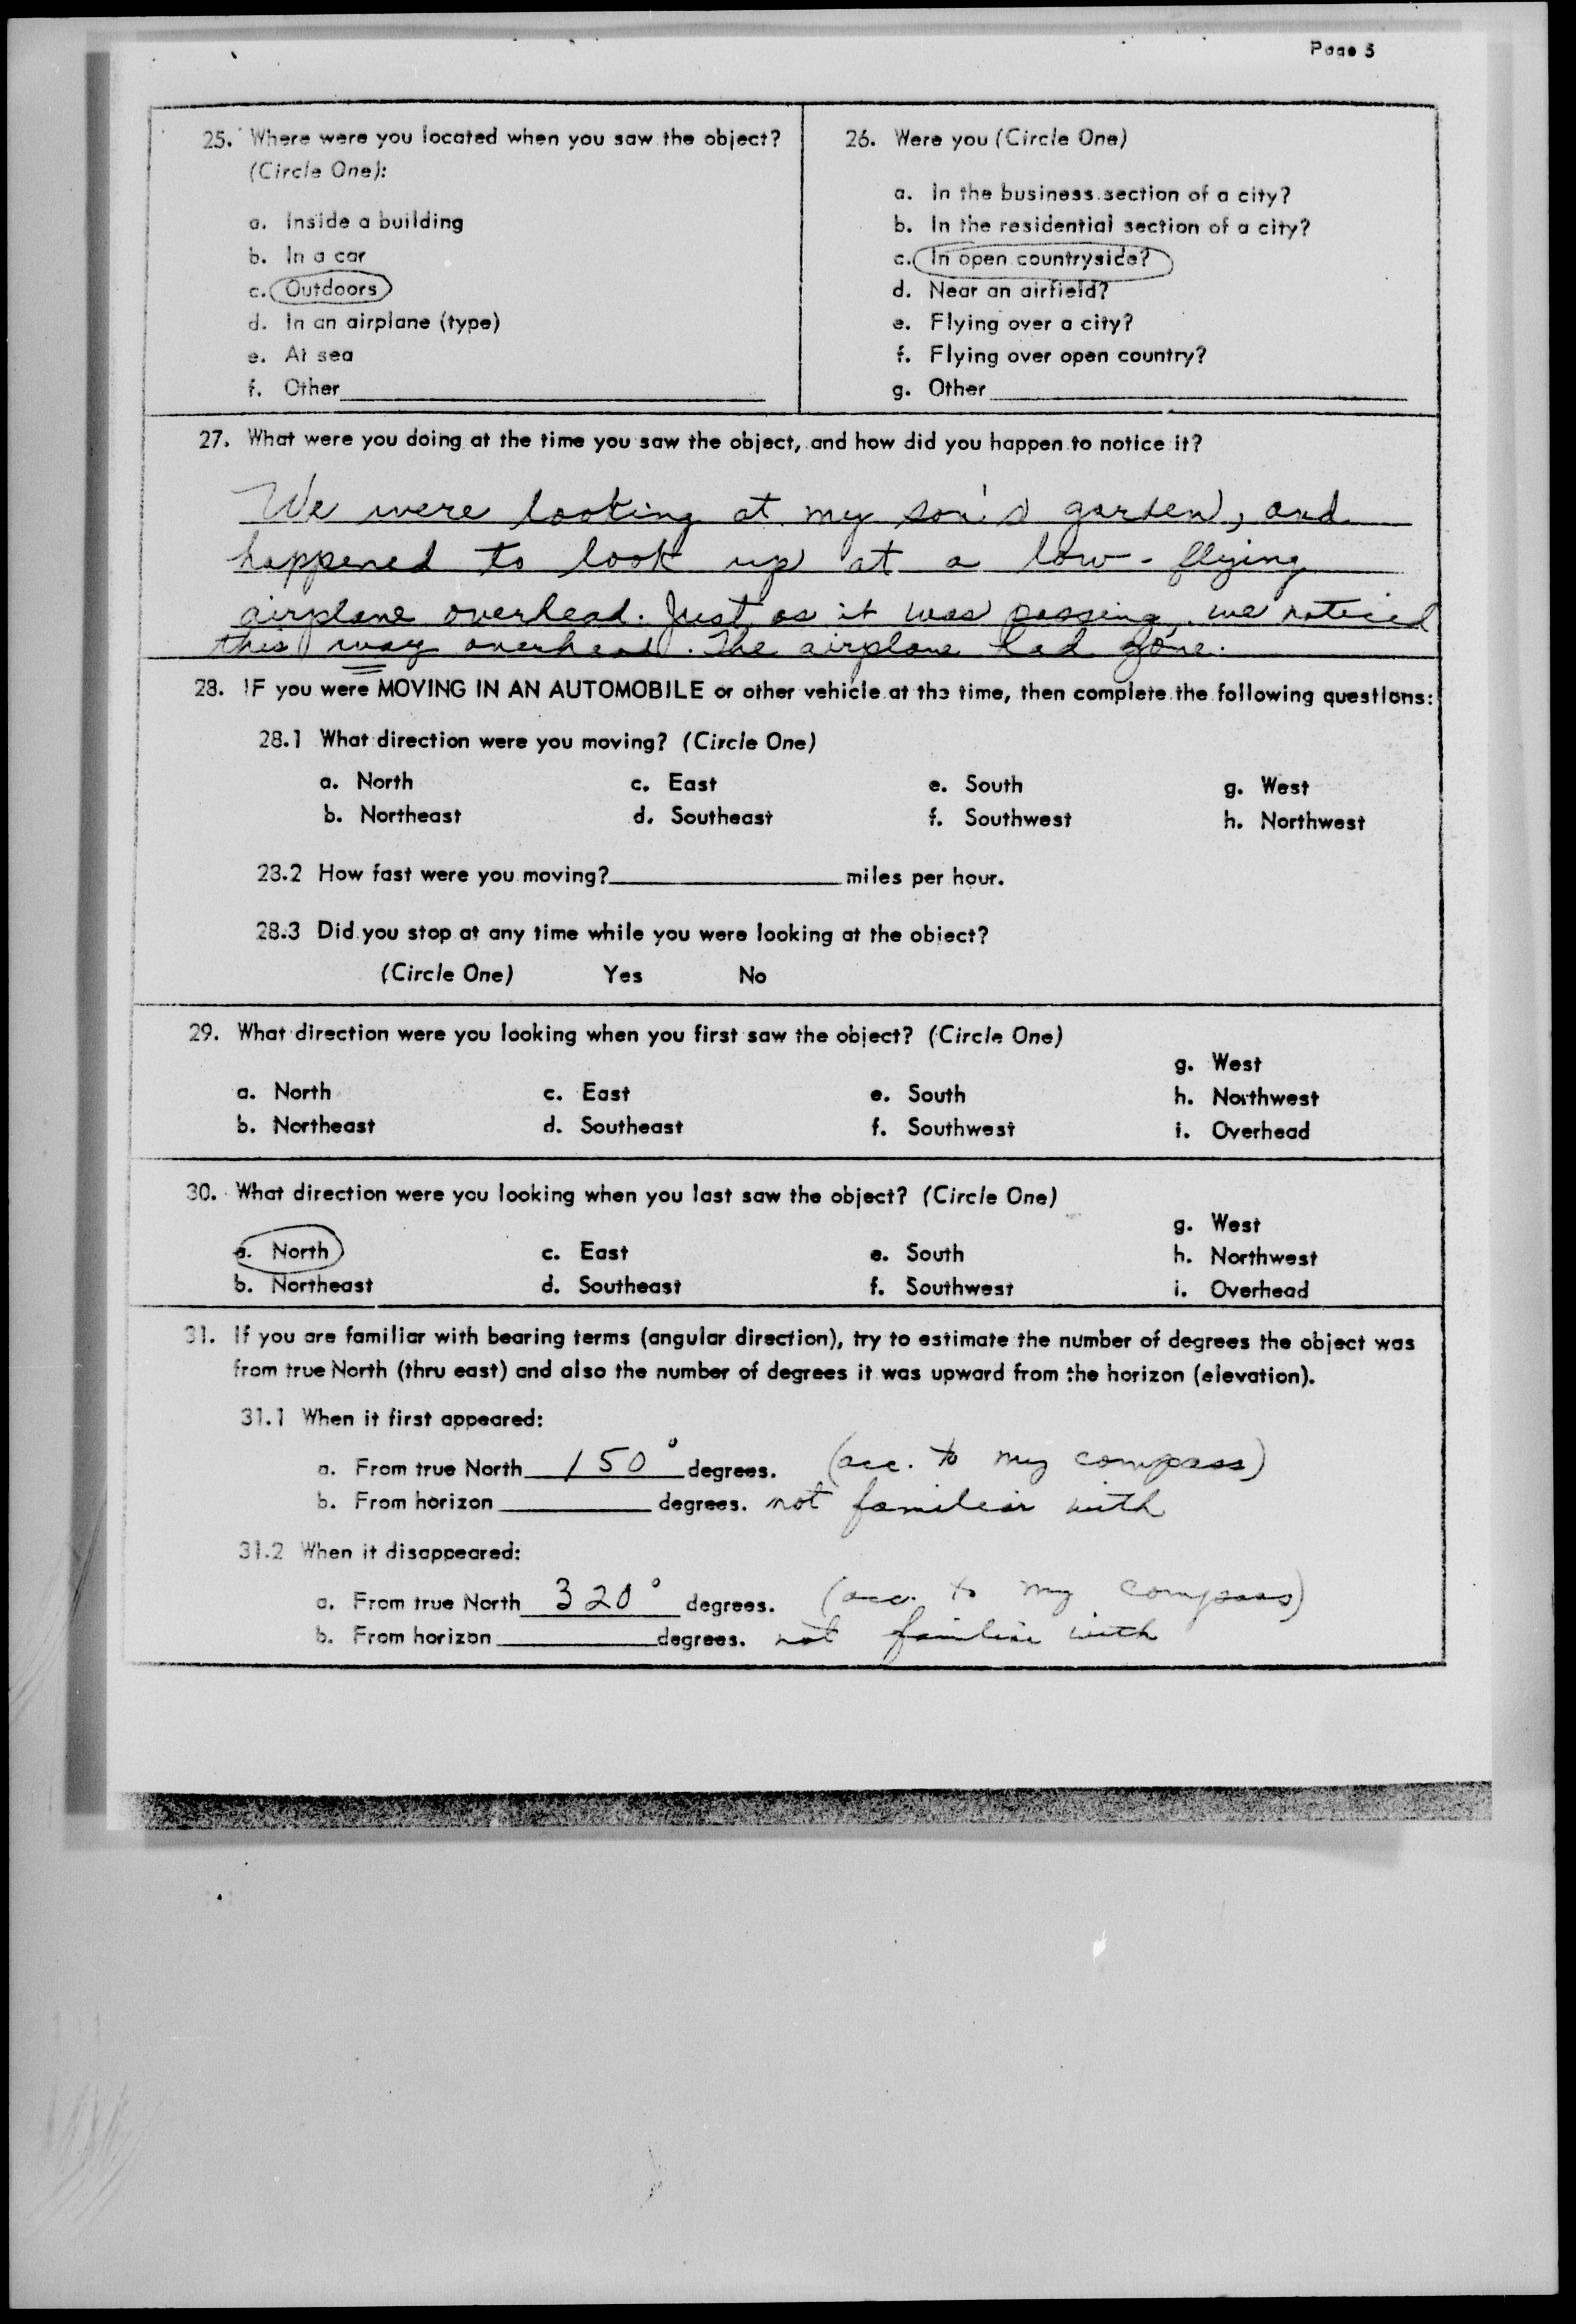 Page 5
25. Where were you located when you saw the object?
(Circle One):
a. Inside a building
b. In a car
c. Outdoors
d. In an airplane (type)
e. At sea
f. Other
26. Were you (Circle One)
a. In the business section of a city?
b. In the residential section of a city?
c. In open countryside?
d. Near an airfield?
e. Flying over a city?
f. Flying over open country?
g. Other
27. What were you doing at the time you saw the object, and how did you happen to notice it?
We were looking at my son's garden, and
happened to look up at a low-flying
airplane overhead. Just as it was passing, we noticed
this way overhead. The airplane had gone.
28. IF you were MOVING IN AN AUTOMOBILE or other vehicle at the time, then complete the following questions:
28.1 What direction were you moving? (Circle One)
a. North c. East e. South g. West
b. Northeast d. Southeast f. Southwest h. Northwest
28.2 How fast were you moving? miles per hour.
28.3 Did you stop at any time while you were looking at the object?
(Circle One) Yes No
29. What direction were you looking when you first saw the object? (Circle One)
g. West
a. North c. East e. South h. Northwest
b. Northeast d. Southeast f. Southwest i. Overhead
30. What direction were you looking when you last saw the object? (Circle One)
g. West
a. North c. East e. South h. Northwest
b. Northeast d. Southeast f. Southwest i. Overhead
31. If you are familiar with bearing terms (angular direction), try to estimate the number of degrees the object was
from true North (thru east) and also the number of degrees it was upward from the horizon (elevation).
31.1 When it first appeared:
a. From true North 150° degrees. (acc. to my compass)
b. From horizon degrees. not familiar with
31.2 When it disappeared:
a. From true North 320° degrees. (acc. to my compass)
b. From horizon degrees. not familiar with